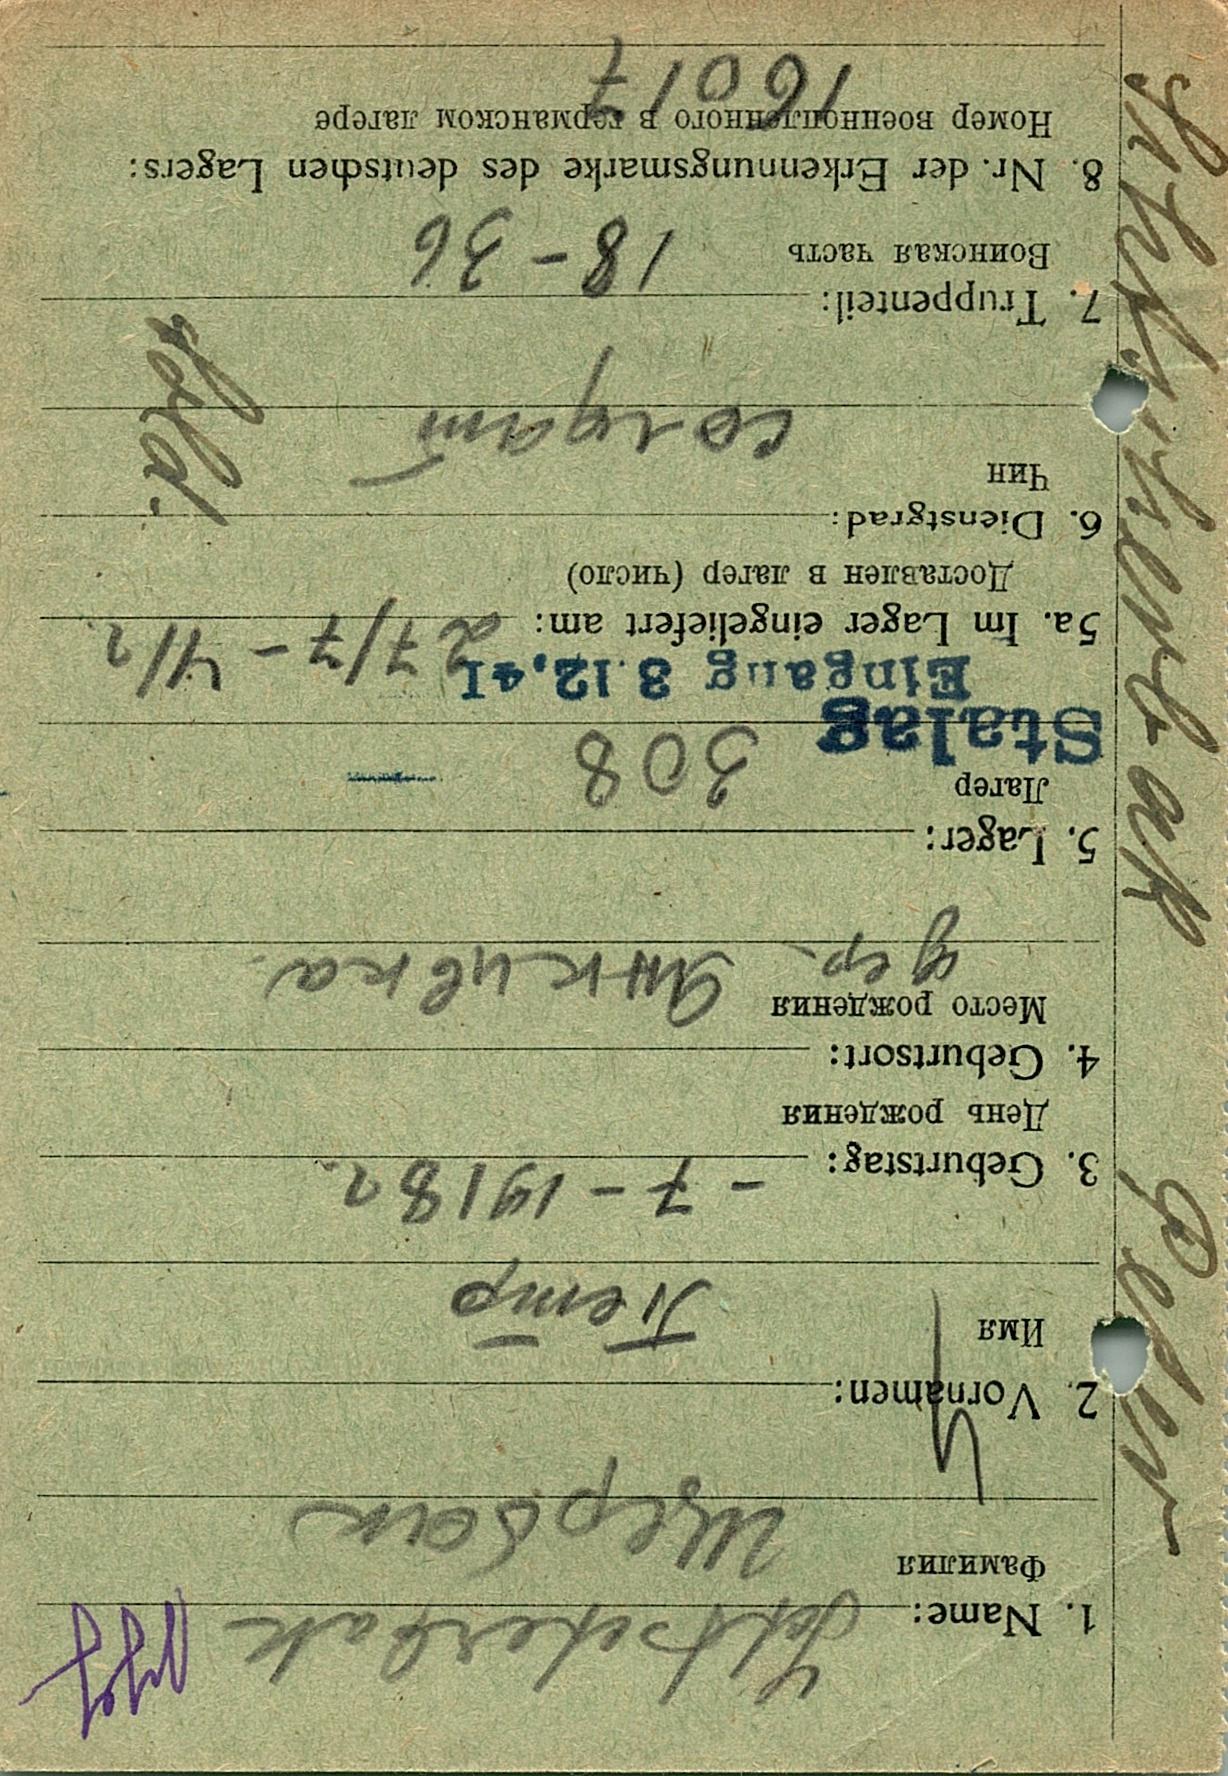 Schtscherbak
1. Name:
Фамилия
Щербак
2. Vornamen:
Имя
Петр
3. Geburtstag:
- 7 - 1918 г.
День рождения
4. Geburtsort:
Место рождения
дер.
5. Lager:
Лагер
308
Stalag
Eingang 3.12.41
5a. Im Lager eingeliefert am: 27/7 - 41 г.
Доставлен в лагер (число)
6. Dienstgrad:
Чин
солдат
Sold.
7. Truppenteil:
Воинская часть
18 - 36
8. Nr. der Erkennungsmarke des deutschen Lagers:
Номер военнопленного в германском лагере
16017
Peter